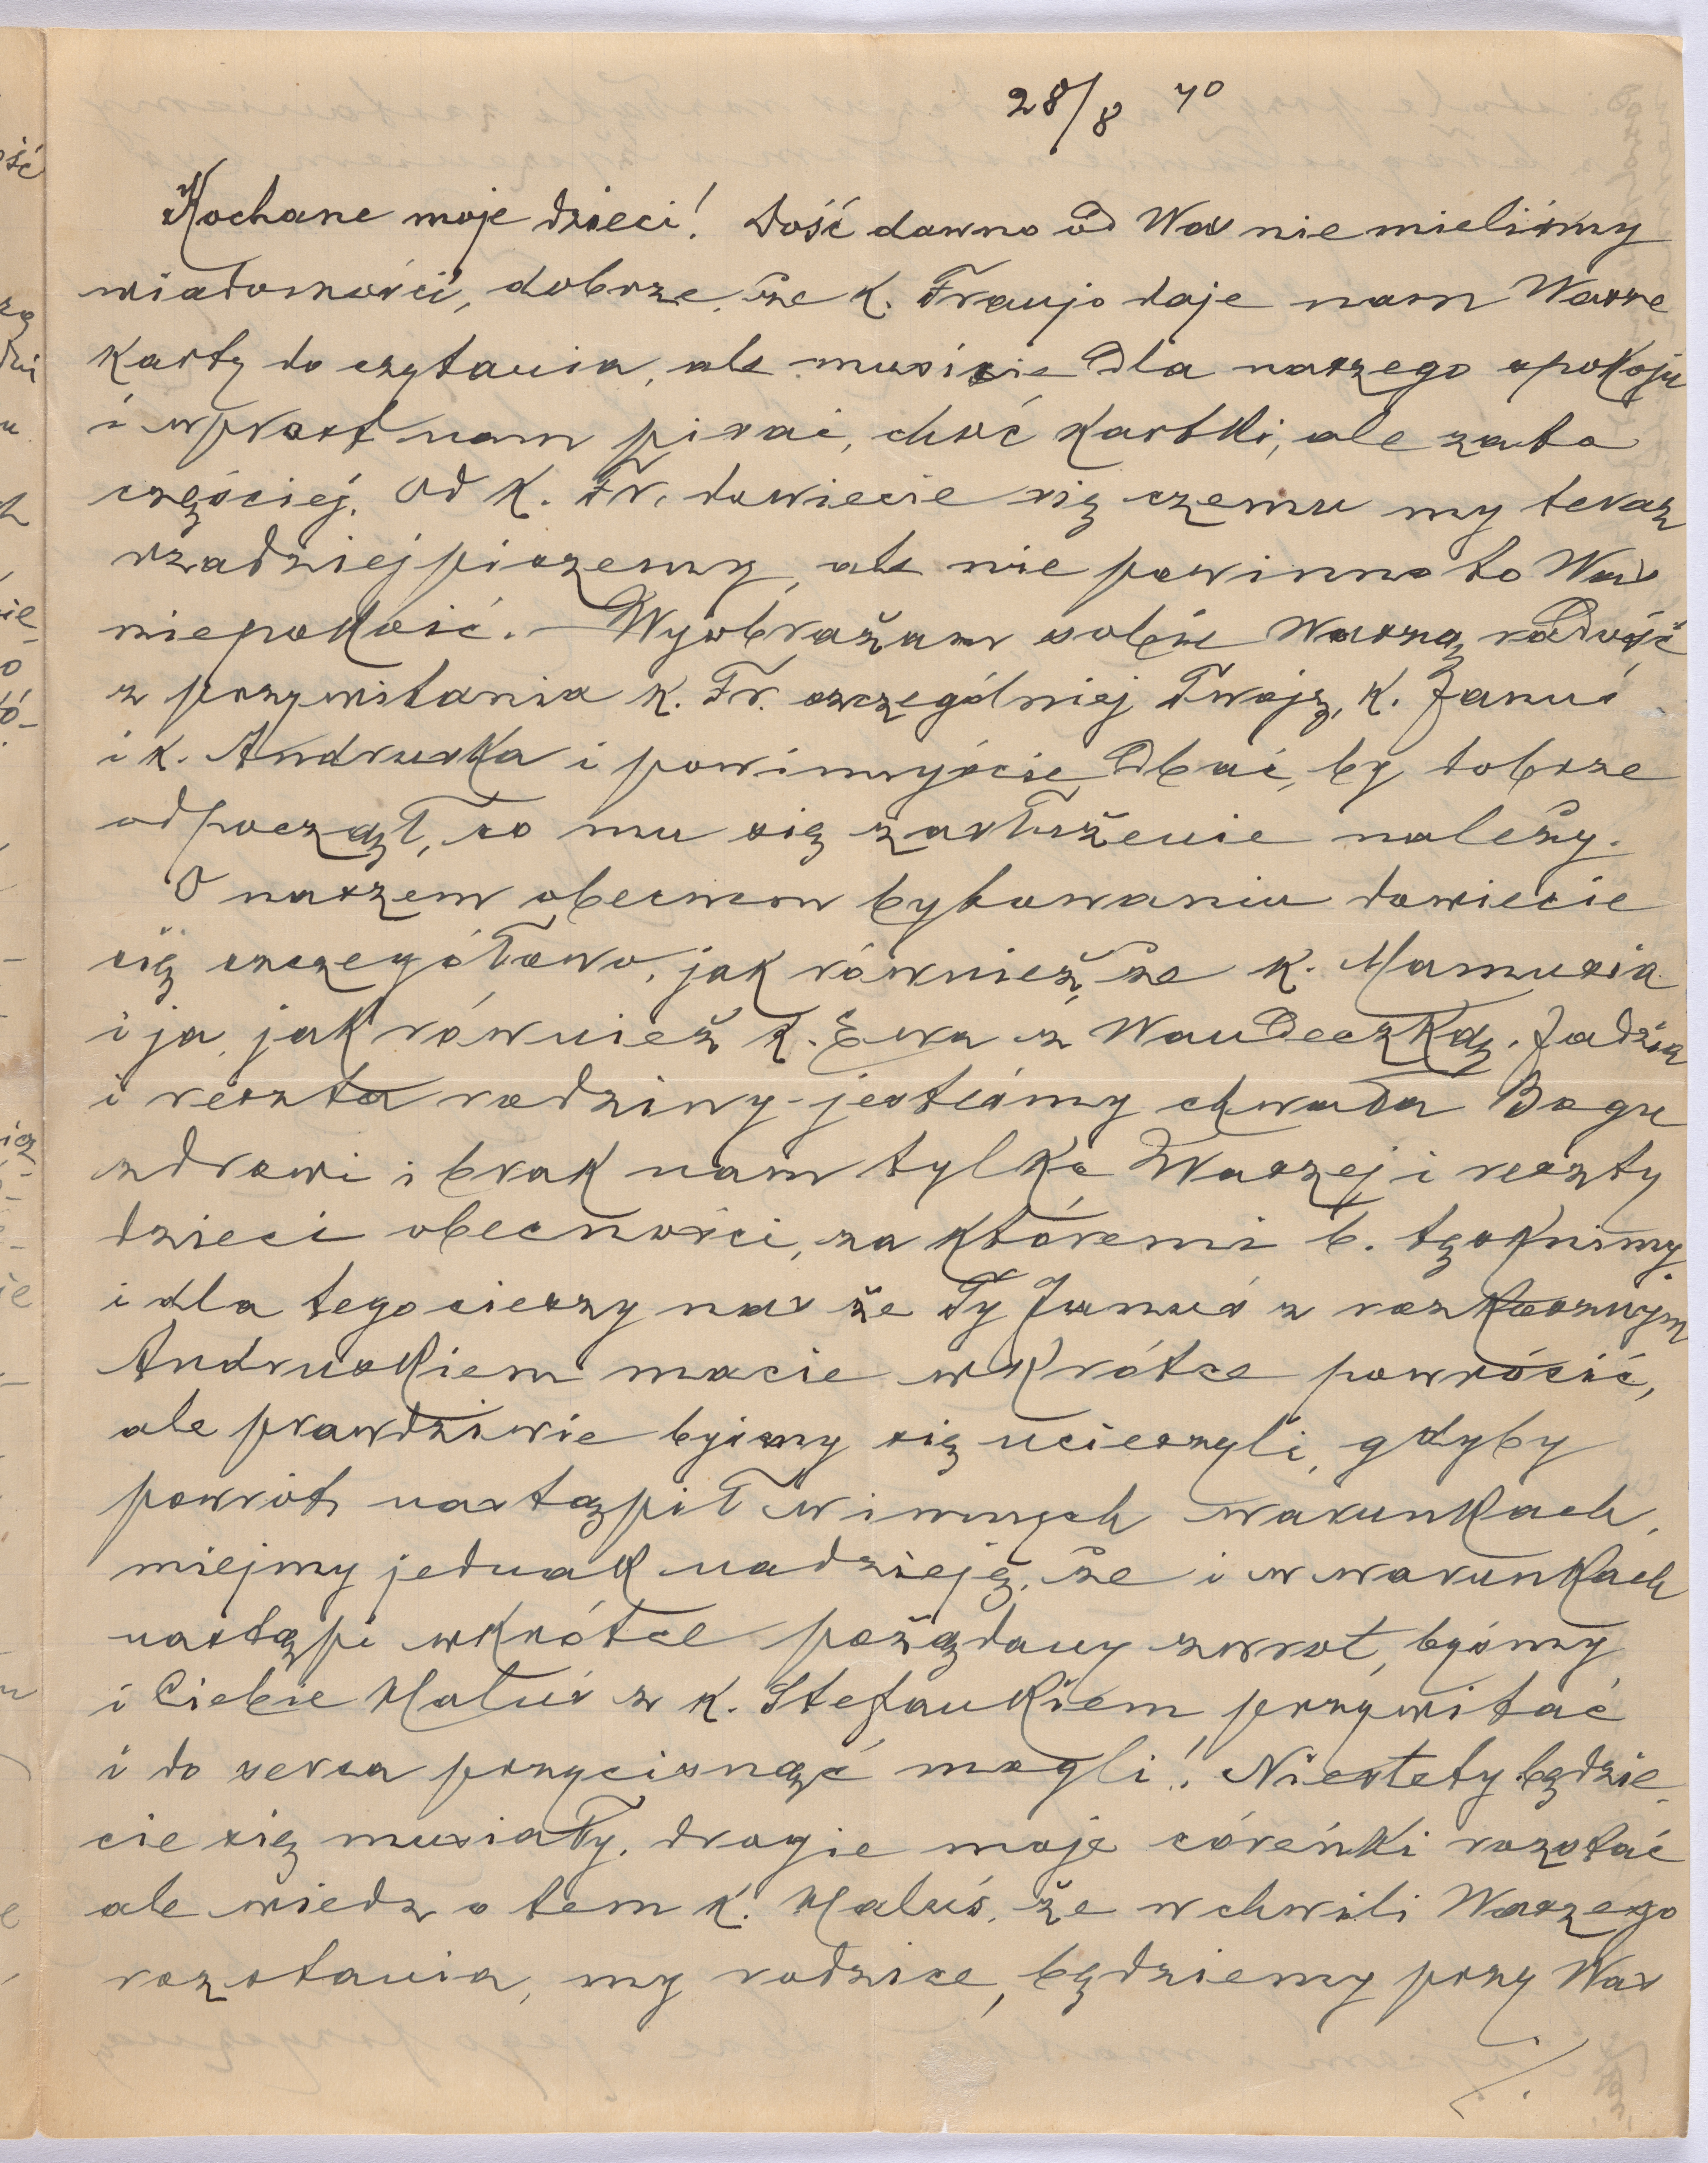 28/8 40
Kochane moje dzieci! Dość dawno od Was nie mieliśmy
wiadomości, dobrze, że k. Franjo daje nam Wasze
karty do czytania, ale musicie dla naszego spokoju
i wprost nam pisać, choć kartki, ale zato
częściej. Od k. Fr. dowiecie się czemu my teraz
rzadziej piszemy, ale nie powinno to Was
niepokoić. – Wyobrażam sobie Waszą radość
z przywitania k. Fr. szczególniej Twoją, k. Januś
i k. Andruska i powinnyście dbać, by dobrze
odpoczął, co mu się zasłużenie należy.
O naszem obecnem bytowaniu dowiecie
się szczegółowo, jak również, że k. Mamusia
i ja, jak również k. Ewa z Wandeczką, Jadzia
i reszta rodziny - jesteśmy chwała Bogu
zdrowi i brak nam tylko Waszej i reszty
dzieci obecności, za któremi b. tęsknimy.
i dla tego cieszy nas że Ty Januś z rozkosznym
Andruskiem macie wkrótce powrócić,
ale prawdziwie byśmy się ucieszyli, gdyby
powrót nastąpił w innych warunkach,
miejmy jednak nadzieję, że i w warunkach
nastąpi wkrótce pożądany zwrot, byśmy
i Ciebie Haluś z k. Stefankiem przywitać
i do serca przycisnąć mogli! Niestety będzie
cie się musiały, drogie moje córeńki rozstać
ale wiedz o tem k. Haluś, że w chwili Waszego
rozstania, my rodzice, będziemy przy Was
./.